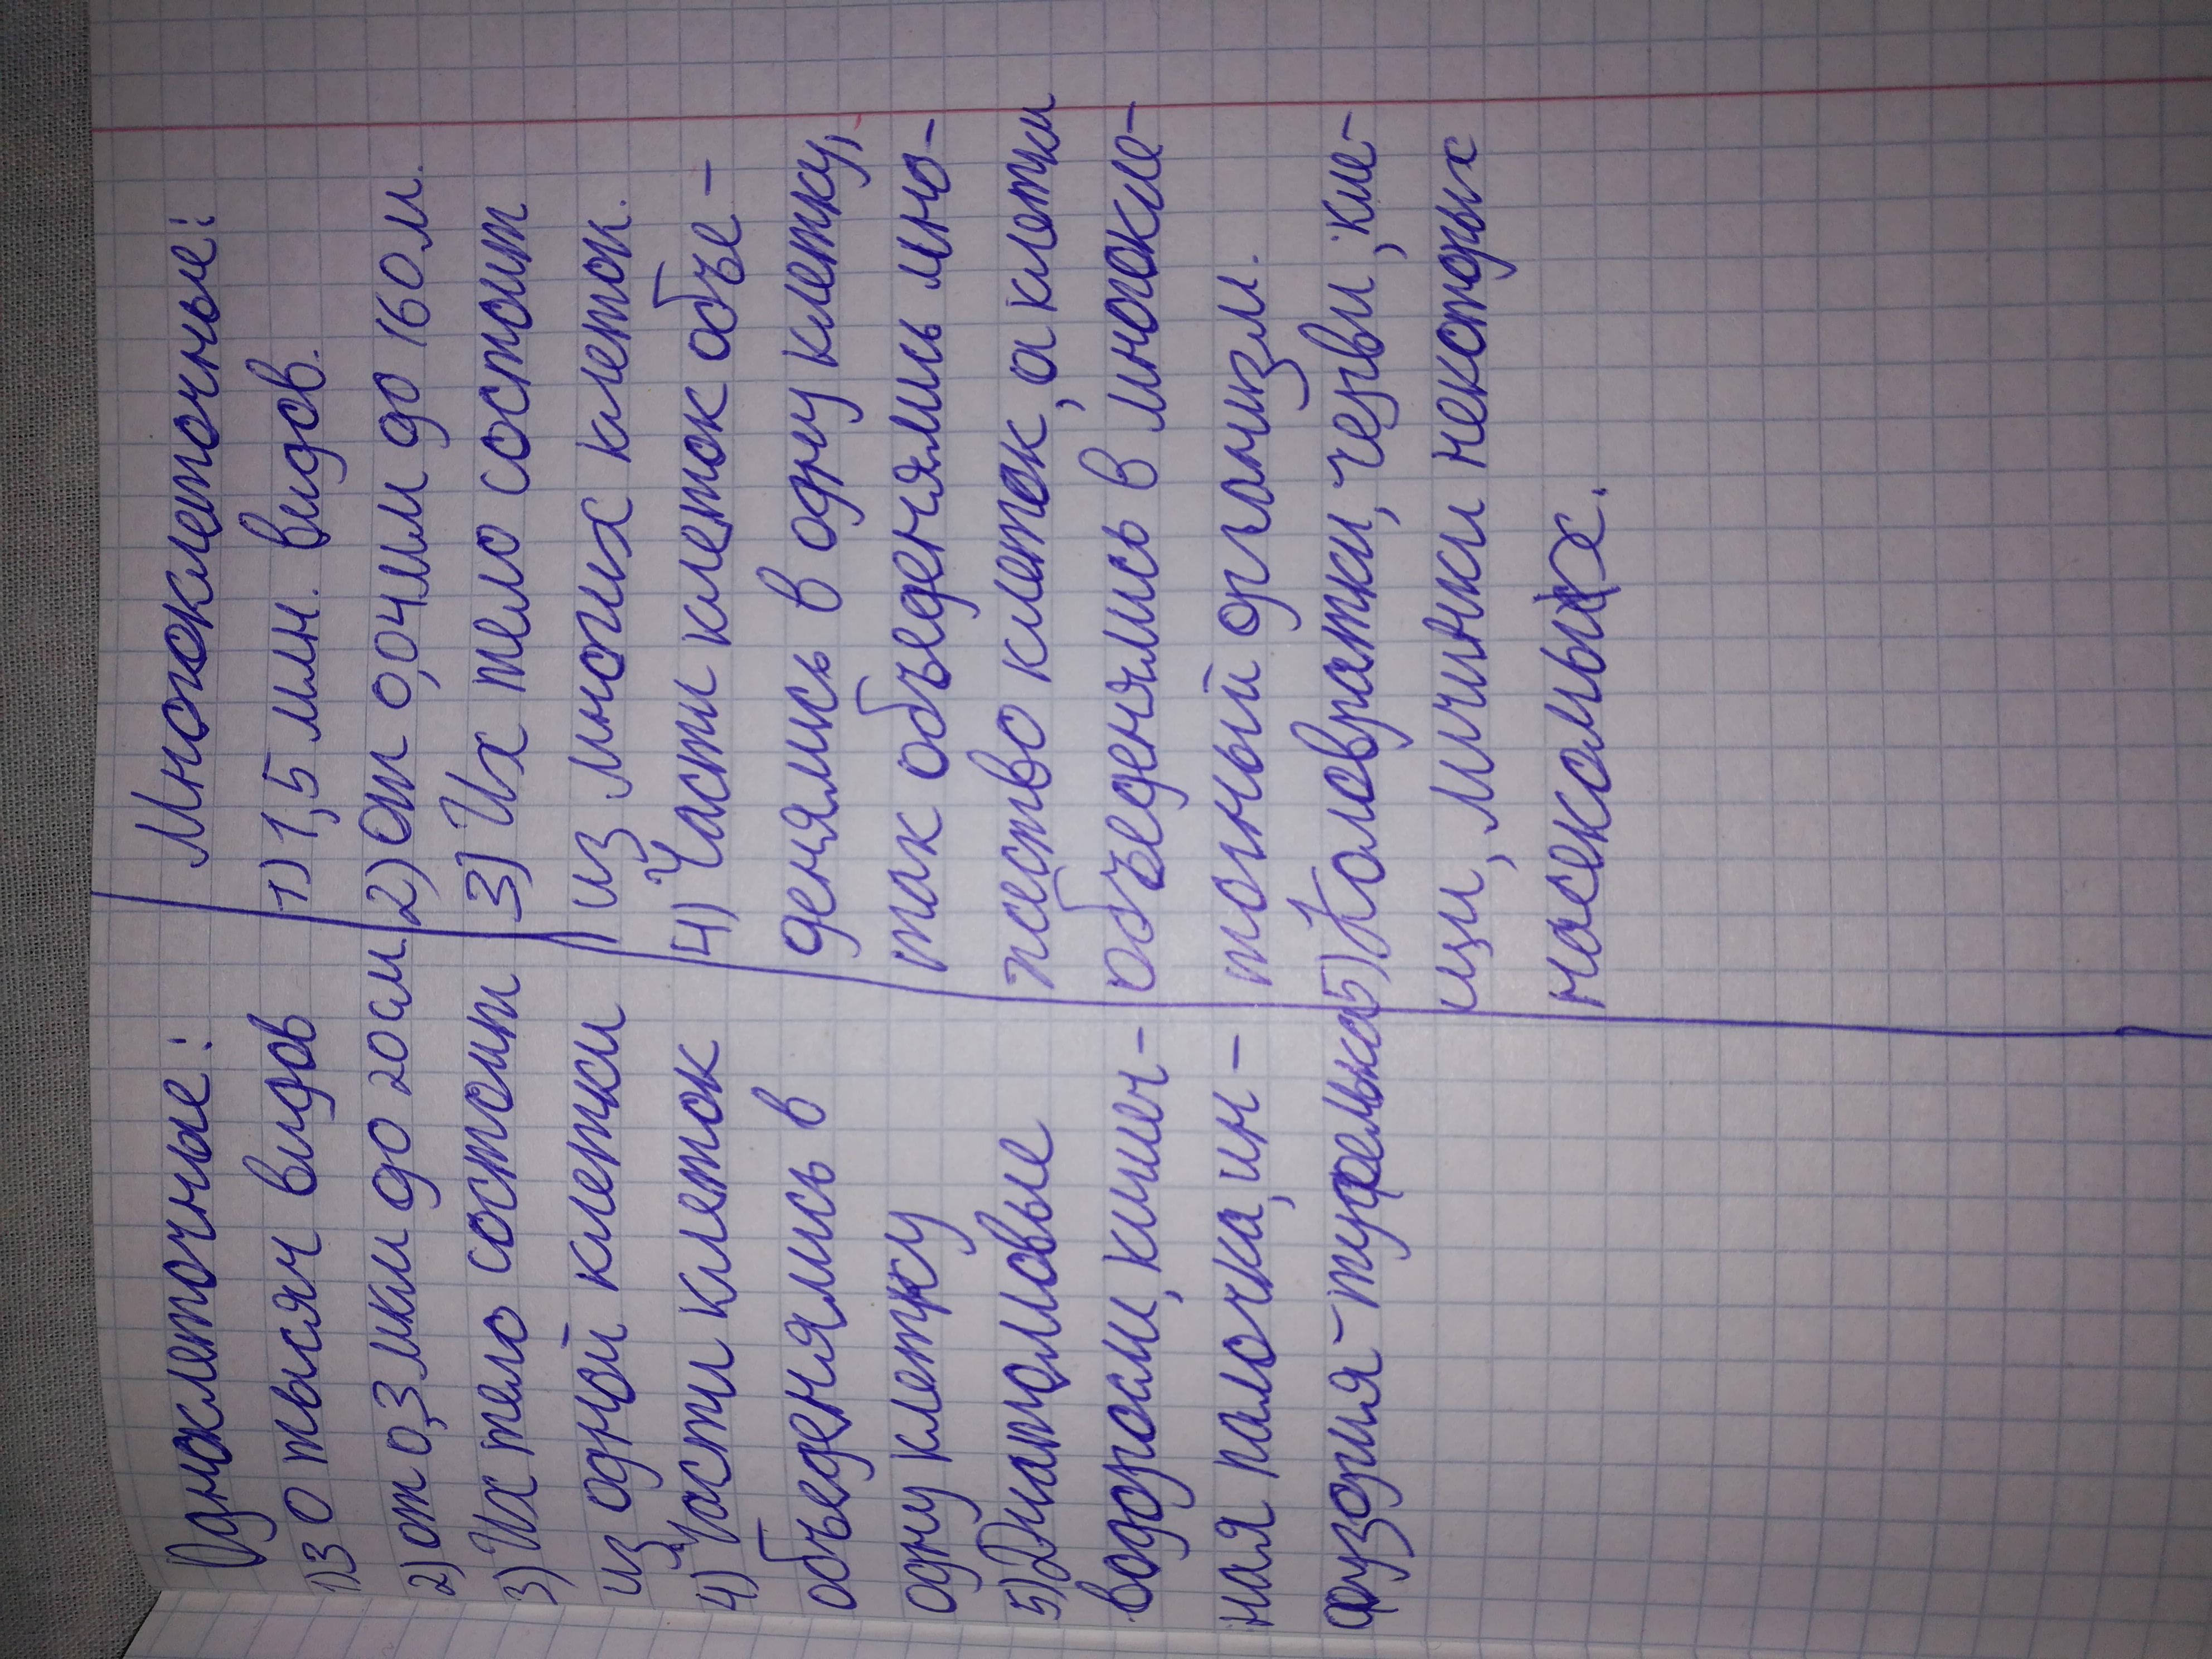 Одноклеточные:
1) 30 тысяч видов
2) от 0,3 мкм до 20 см
3) Их тело состоит
из одной клетки
4) Части клеток
объеденялись в
одну клетку
5) Диатомовые
водросли, кишеч-
ная палочка, ин-
фузория-туфелька
Многоклеточные:
1) 1,5 млн. видов.
2) От 0,04мм до 160 м.
3) Их тело состоит
из многих клеток.
4) Части клеток объе-
денялись в одну клетку,
так объеденялись мно-
жество клеток, а клетки
объеденялись в многокле-
точный организм.
5) Коловратки, черви, кле-
щи, личинки некоторых
насекомых.